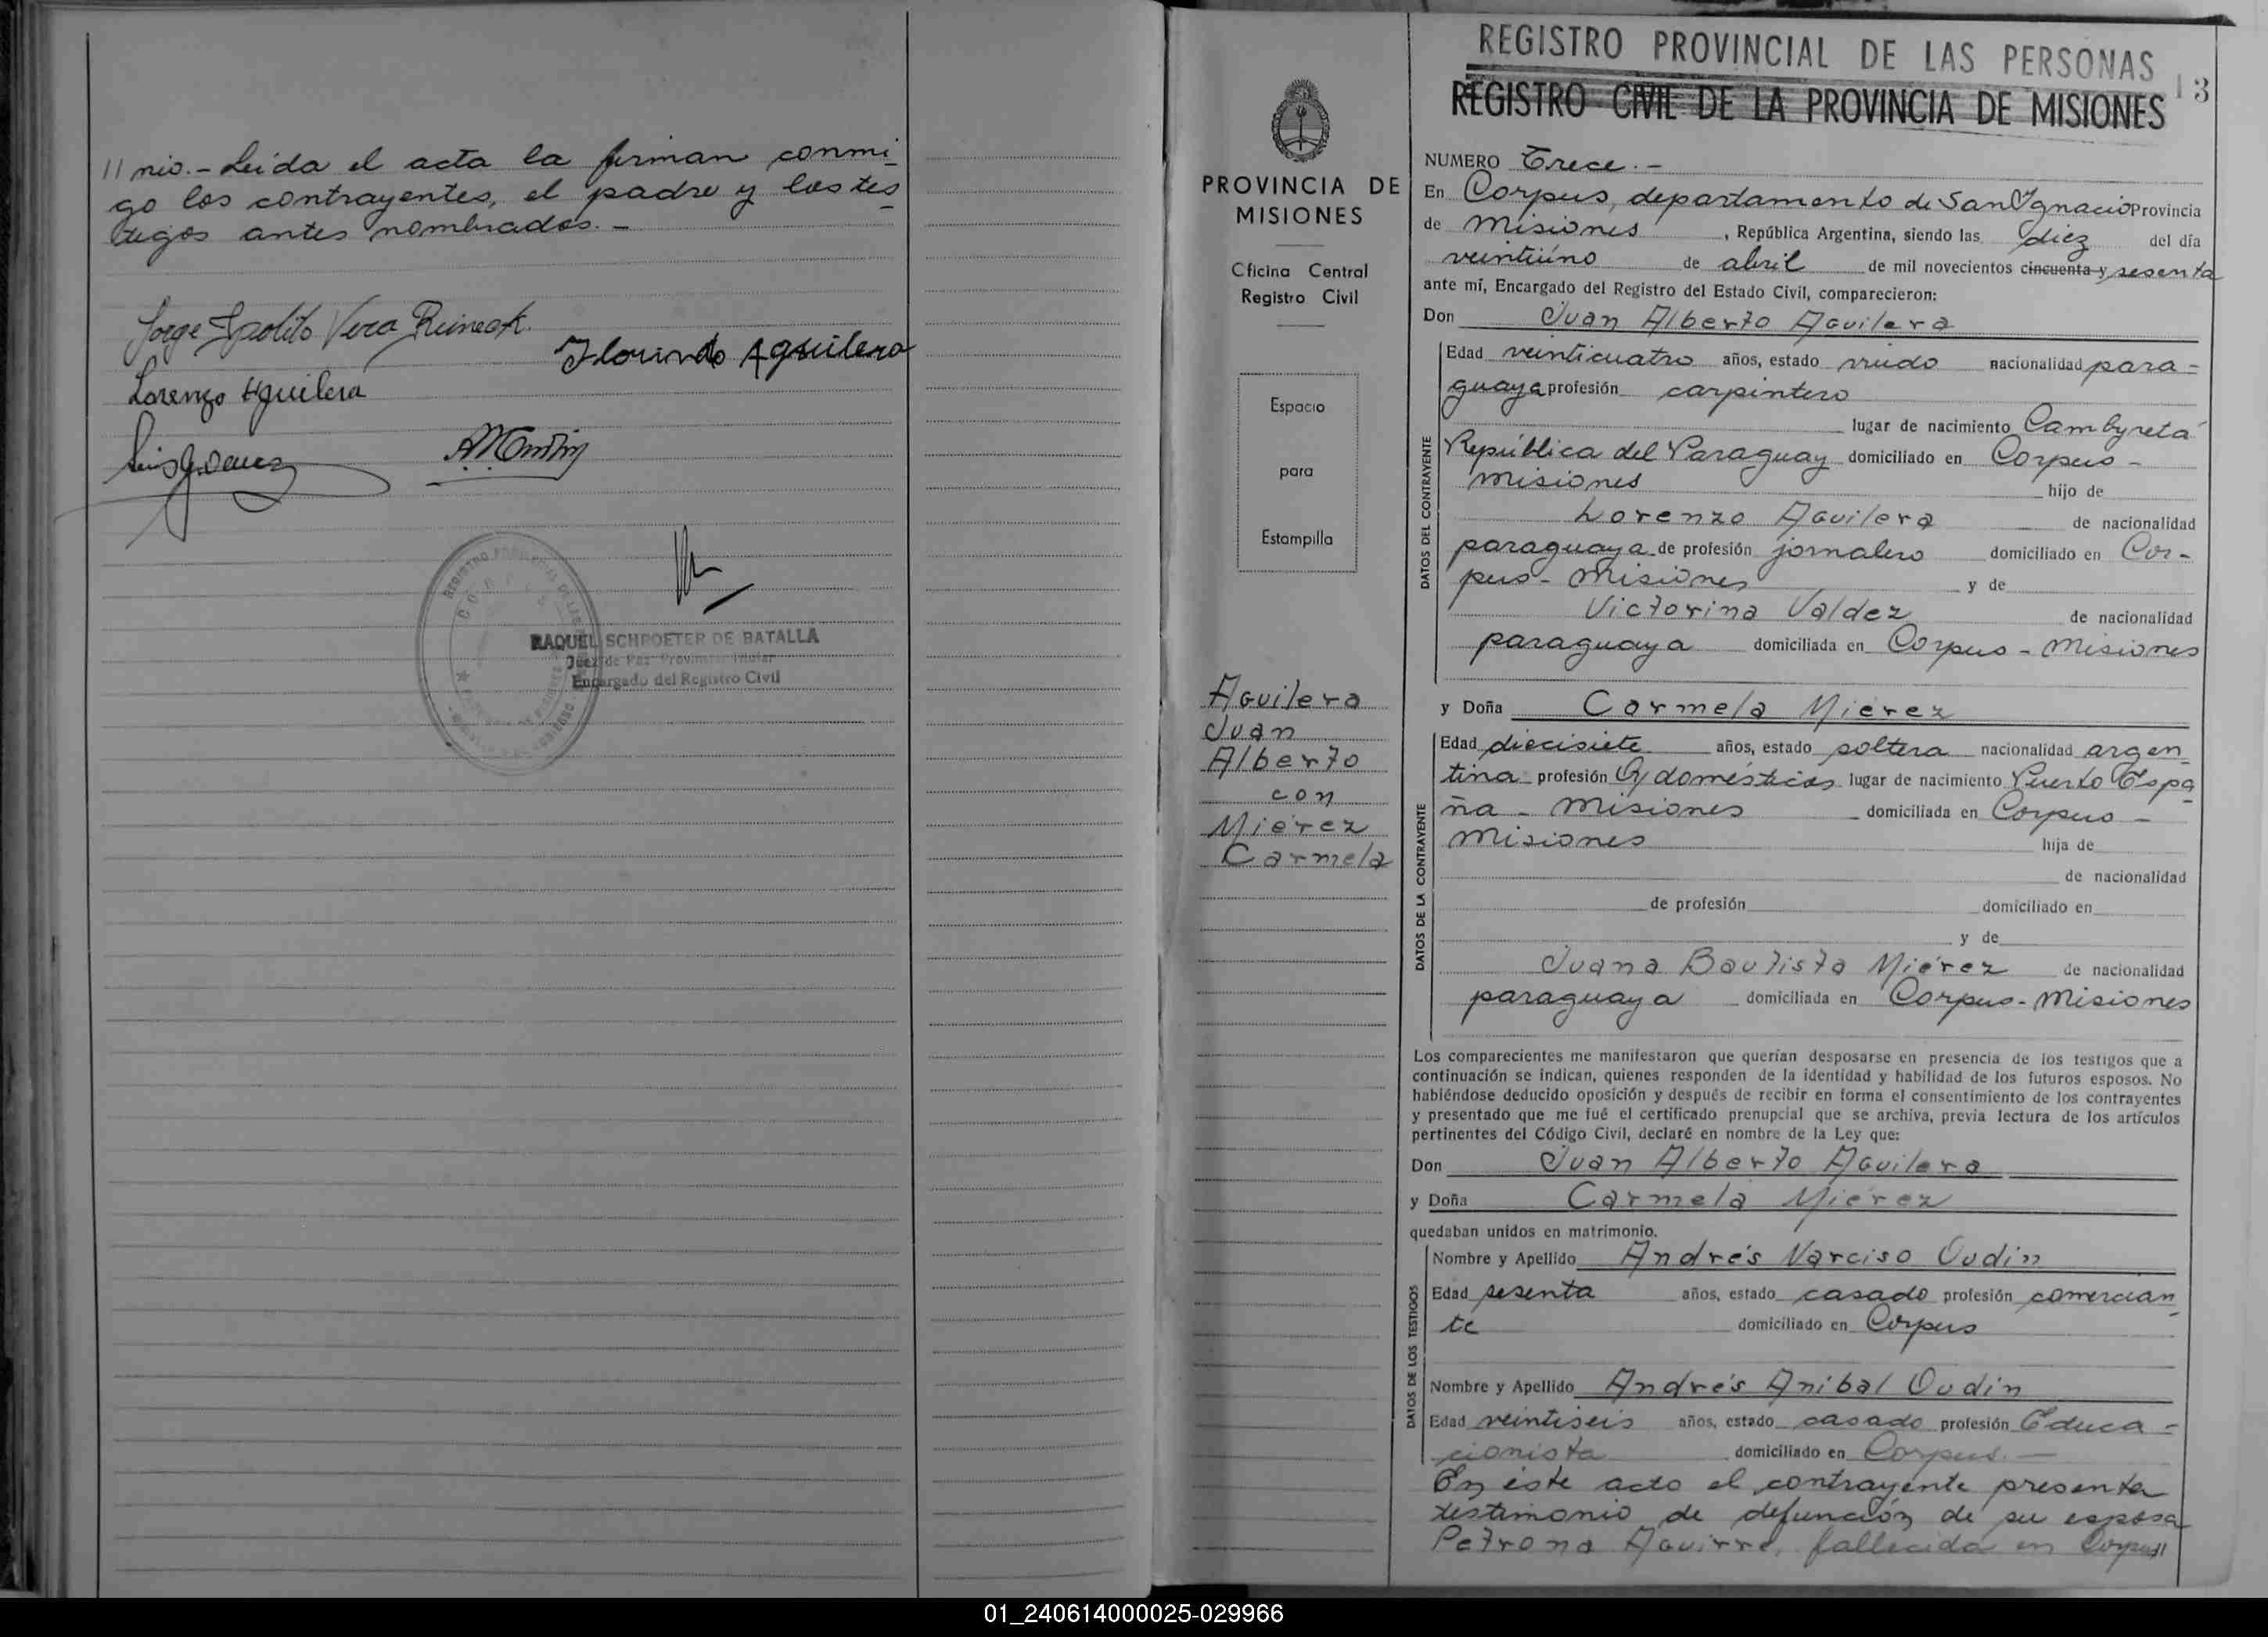 // nio.- Leida el acta la firman conmi-
go los contrayentes, el padre y los tes-
tigos antes nombrados.-
Florindo Aguilera
Lorenzo Aguilera
RAQUEL SCHROETER DE BATALLA
Juez de Paz Provincial Titular
Encargado del Registro Civil
PROVINCIA DE
MISIONES
Oficina Central
Registro Civil
Espacio
para
Estampilla
Aguilera
Juan
Alberto
con
Miérez
Carmela
REGISTRO PROVINCIAL DE LAS PERSONAS
REGISTRO CIVIL DE LA PROVINCIA DE MISIONES
13
NUMERO Trece.-
En Corpus, departamento de San Ignacio Provincia
de Misiones, República Argentina, siendo las diez del día
veintiúno de abril de mil novecientos cincuenta y sesenta
ante mí, Encargado del Registro del Estado Civil, comparecieron:
Don Juan Alberto Aguilera
DATOS DEL CONTRAYENTE
Edad veinticuatro años, estado viudo nacionalidad para-
guaya profesión carpintero
lugar de nacimiento Cambyretá
República del Paraguay domiciliado en Corpus-
Misiones hijo de
Lorenzo Aguilera de nacionalidad
paraguaya de profesión jornalero domiciliado en Cor-
pus- Misiones y de
Victorina Valdez de nacionalidad
paraguaya domiciliada en Corpus - Misiones
y Doña Carmela Miérez
DATOS DE LA CONTRAYENTE
Edad diecisiete años, estado soltera nacionalidad argen
tina profesión Q/domésticos lugar de nacimiento Puerto Espa
ña - Misiones domiciliada en Corpus -
Misiones hija de
de nacionalidad
de profesión domiciliado en
y de
Juana Bautista Miérez de nacionalidad
paraguaya domiciliada en Corpus-Misiones
Los comparecientes me manifestaron que querían desposarse en presencia de los testigos que a
continuación se indican, quienes responden de la identidad y habilidad de los futuros esposos. No
habiéndose deducido oposición y después de recibir en forma el consentimiento de los contrayentes
y presentado que me fué el certificado prenupcial que se archiva, previa lectura de los artículos
pertinentes del Código Civil, declaré en nombre de la Ley que:
Don Juan Alberto Aguilera
y Doña Carmela Miérez
quedaban unidos en matrimonio.
DATOS DE LOS TESTIGOS
Nombre y Apellido Andrés Narciso Oudin
Edad sesenta años, estado casado profesión comercian
te domiciliado en Corpus
Nombre y Apellido Andrés Anibal Oudin
Edad veintiseis años, estado casado profesión Educa-
cionista domiciliado en Corpus.-
En éste acto el contrayente presenta
testimonio de defunción de su esposa
Petrona Aguirre, fallecida en Corpus//
01_240614000025-029966